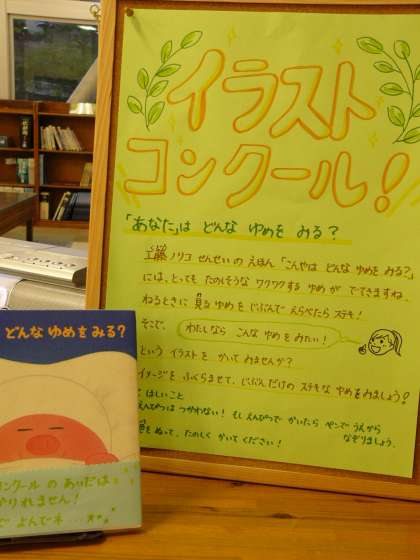 イラスト
コンクール!
「あなた」は どんな ゆめを みる?
工藤 ノリコ せんせいの えほん 「こんやは どんな ゆめを みる?」
には、とっても たのしそうな ワクワクする ゆめ が でてきますね。
ねるときに 見る ゆめを じぶんで えらべたら ステキ!
そこで、 わたしなら こんな ゆめを みたい!
という イラストを かいて みませんか?
イメージを ふくらませて、じぶんだけの ステキな ゆめを みましょう!
はしいこと
えんぴつは つかわない! もし えんぴつで かいたら ペンで うえから
なぞりましょう。
をぬって、たのしく かいて ください!
どんなゆめをみる?
コンクール の あいだは
りれません!
で よんでネ…